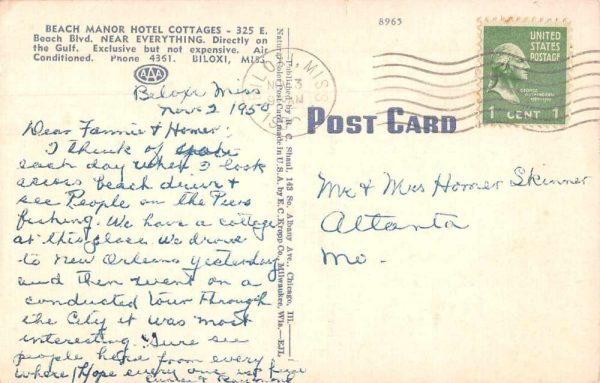 BEACH MANOR HOTEL COTTAGES - 325 E.
Beach Blvd. NEAR EVERYTHING. Directly on
the Gulf. Exclusive but not expensive. Air
Conditioned. Phone 4361. BILOXI, MISS.
AAA
Biloxi Miss
Nov 2 1950
Dear Fannie & Homer:
I think of you
each day when I look
across beach drive &
see People on the Piers
fishing. We have a cottage
at this place. We drove
to New Orleans yesterday
and then went on a
conducted tour through
the City it was most
interesting. Sure see
people here from every
where. Hope every one
Published by H. C. Shaul, 143 So. Albany Ave., Chicago, Ill.
Natural Color Post Card made in U.S.A. by E. C. Kropp Co., Milwaukee, Wis.—EJL
8965
BILOXI, MISS.
POST CARD
UNITED
STATES
POSTAGE
GEORGE
WASHINGTON
1 CENT 1
Mr & Mrs Homer Skinner
Altanta
Mo.